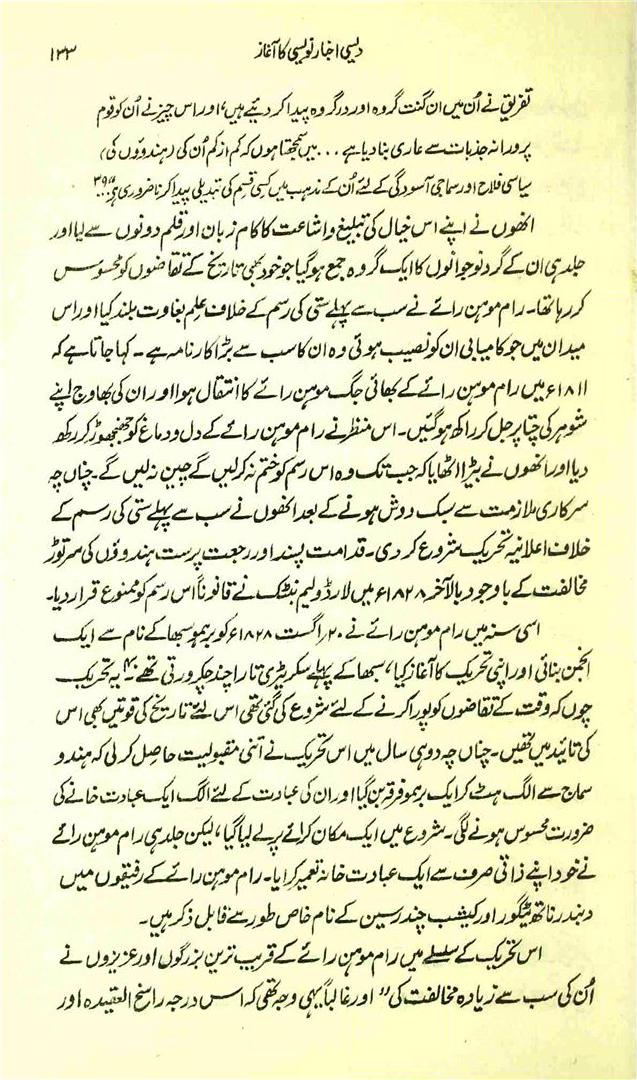 دیسی اخبار نویسی کا آغاز ۱۳۳
تفریق نے اُن میں ان گنت گروہ اور در گروہ پیدا کر دئیے ہیں، اور اس چیز نے اُن کو قوم
پرورانہ جذبات سے عاری بنا دیا ہے ... میں سمجھتا ہوں کہ کم از کم اُن کی (ہندوؤں کی)
سیاسی فلاح اور سماجی آسودگی کے لئے اُن کے مذہب میں کسی قسم کی تبدیلی پیدا کرنا ضروری ہے"...۳۹
انھوں نے اپنے اس خیال کی تبلیغ و اشاعت کا کام زبان اور قلم دونوں سے لیا اور
جلد ہی ان کے گرد نوجوانوں کا ایک گروہ جمع ہو گیا جو خود بھی تاریخ کے تقاضوں کو محسوس
کر رہا تھا۔ رام موہن رائے نے سب سے پہلے ستی کی رسم کے خلاف علمِ بغاوت بلند کیا اور اس
میدان میں جو کامیابی ان کو نصیب ہوئی وہ ان کا سب سے بڑا کارنامہ ہے۔ کہا جاتا ہے کہ
۱۸۱۱ء میں رام موہن رائے کے بھائی جگ موہن رائے کا انتقال ہوا اور ان کی بھاوج اپنے
شوہر کی چتا پر جل کر راکھ ہو گئیں۔ اس منظر نے رام موہن رائے کے دل و دماغ کو جھنجھوڑ کر رکھ
دیا اور انھوں نے بیڑا اٹھایا کہ جب تک وہ اس رسم کو ختم نہ کر لیں گے چین نہ لیں گے۔ چناں چہ
سرکاری ملازمت سے سبک دوش ہونے کے بعد انھوں نے سب سے پہلے ستی کی رسم کے
خلاف اعلانیہ تحریک شروع کر دی۔ قدامت پسند اور رجعت پرست ہندوؤں کی سر توڑ
مخالفت کے باوجود بالآخر ۱۸۲۸ء میں لارڈ ولیم بنٹنک نے قانوناً اس رسم کو ممنوع قرار دیا۔
اسی سنہ میں رام موہن رائے نے ۲۰ اگست ۱۸۲۸ء کو برہمو سبھا کے نام سے ایک
انجمن بنائی اور اپنی تحریک کا آغاز کیا، سبھا کے پہلے سکریٹری تارا چند چکرورتی تھے۴۰۔ یہ تحریک
چوں کہ وقت کے تقاضوں کو پورا کرنے کے لئے شروع کی گئی تھی اس لئے تاریخ کی قوتیں بھی اس
کی تائید میں تھیں۔ چناں چہ دو ہی سال میں اس تحریک نے اتنی مقبولیت حاصل کر لی کہ ہندو
سماج سے الگ ہٹ کر ایک برہمو فرقہ بن گیا اور ان کی عبادت کے لئے الگ ایک عبادت خانے کی
ضرورت محسوس ہونے لگی۔ شروع میں ایک مکان کرائے پر لے لیا گیا، لیکن جلد ہی رام موہن رائے
نے خود اپنے ذاتی صرف سے ایک عبادت خانہ تعمیر کرایا۔ رام موہن رائے کے رفیقوں میں
دبندر ناتھ ٹیگور اور کیشب چندر سین کے نام خاص طور سے قابل ذکر ہیں۔
اس تحریک کے سلسلے میں رام موہن رائے کے قریب ترین بزرگوں اور عزیزوں نے
اُن کی سب سے زیادہ مخالفت کی" اور غالباً یہی وجہ تھی کہ اس درجہ راسخ العقیدہ اور